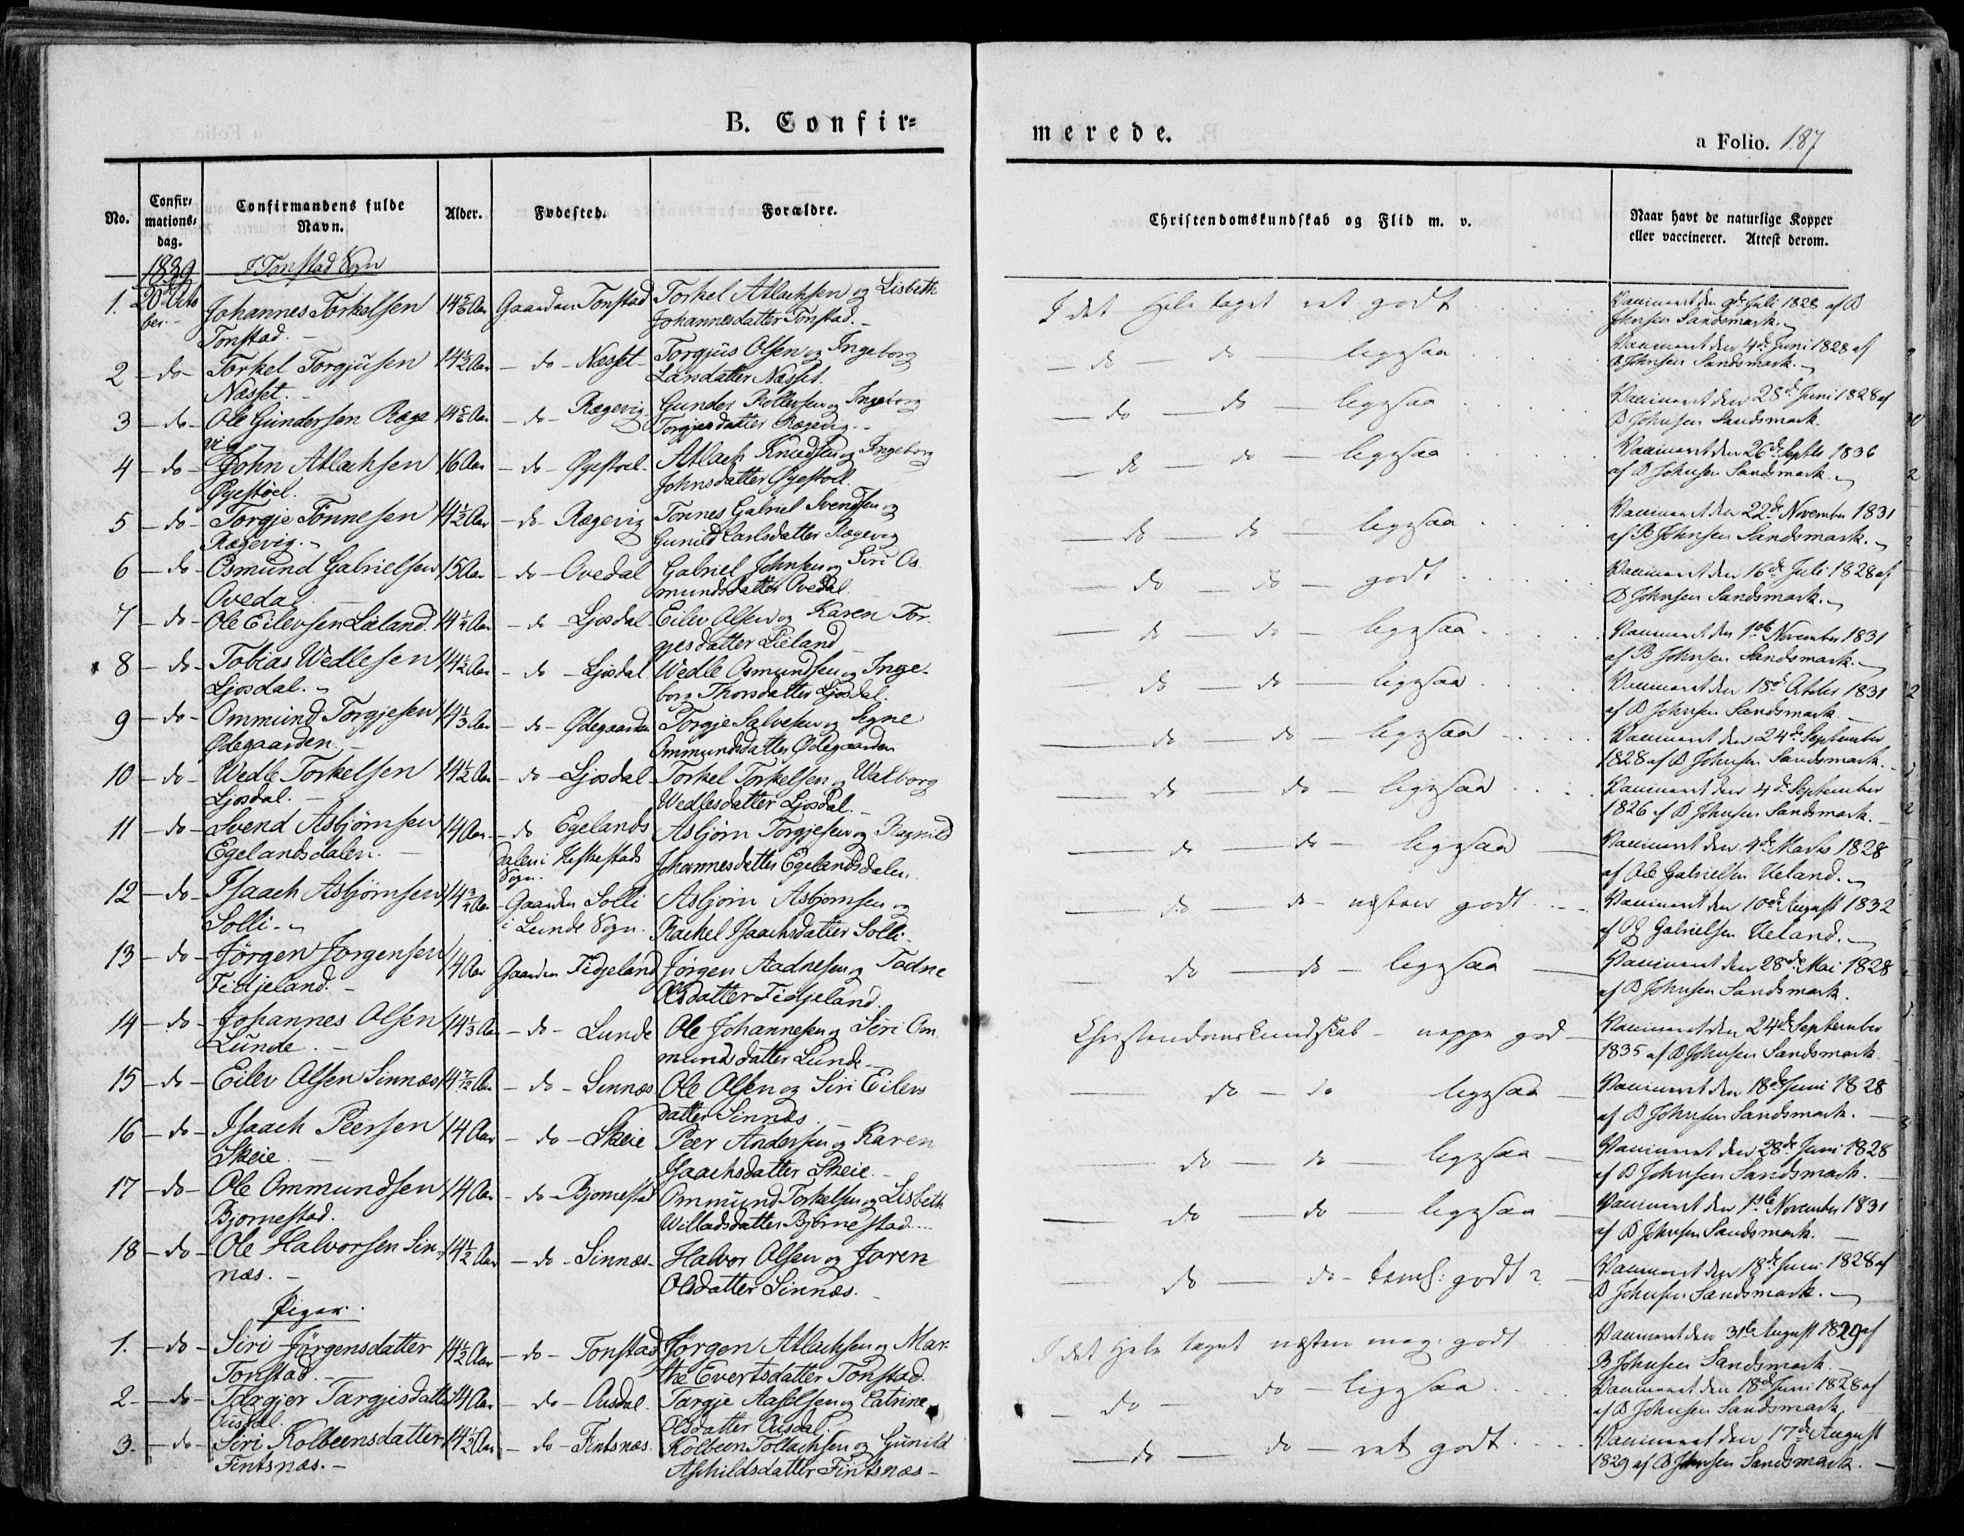 B. Confir=
merede.
a Folio. 187
No.
Confir=
mations=
dag.
Confirmandens fulde
Navn.
Alder.
Fødested.
Forældre.
Christendomskundskab og Flid m. v.
Naar havt de naturlige Kopper
eller vaccineret. Attest derom.
1839
I Tonstad Sogn
1. 20 Octo Johannes Torkelsen 14 Aar Gaarden Tonstad Torkel Atlachsen og Lisbeth I det Hele taget ret godt Vaccineret den 9de Juli 1828 af B
ber Tonstad. Johannesdatter Tonstad. Johnsen Sandsmark.
2 do Torkel Torgjüsen 14 Aar do Næsset Torgjüs Olsen og Ingeborg do do ligesaa Vaccineret den 4de Juni 1828 af
Næsset. Larsdatter Næsset. B Johnsen Sandsmark.
3 do Ole Gundersen Ræge 14 Aar do Rægevig Gunder Rollevsen og Ingeborg do do ligesaa Vaccineret den 28de Juni 1828 af
vig Torgjesdatter Rægevig. B Johnsen Sandsmark.
4 do John Atlachsen 16 Aar do Øyestøel Atlach Knudsen og Ingeborg do do ligesaa Vaccineret den 26de Septbr 1836
Øyestøel. Johnsdatter Øyestøel. af B Johnsen Sandsmark.
5 do Torgje Tønnesen 14½ Aar do Rægevig Tønnes Gabriel Svendsen og do do ligesaa Vaccineret den 22de November 1831
Rægevig. Gunild Carlsdatter Rægevig af B Johnsen Sandsmark.
6 do Osmund Gabrielsen 15 Aar do Ovedal Gabriel Johnsen og Siri Os do do godt Vaccineret den 16de Juli 1828 af
Ovedal mundsdatter Ovedal B Johnsen Sandsmark.
7 do Ole Eilevsen Lieland. 14¼ Aar do Ljosdal Eilev Olsen og Karen Tor do do ligesaa Vaccineret den 1ste November 1831
gesdatter Lieland af B Johnsen Sandsmark.
8 do Tobias Wedlesen 14½ Aar do Ljosdal Wedle Osmundsen og Inge= do do ligesaa Vaccineret den 18de Octbr 1831
Ljosdal. borg Thorsdatter Ljosdal. af B Johnsen Sandsmark.
9 do Ommund Torgjesen 14⅓ Aar do Ødegaarden Torgje Salvesen og Segne do do ligesaa Vaccineret den 24de September
Ødegaarden. Ommundsdatter Ødegaarden 1828 af B Johnsen Sandsmark.
10 do Wedle Torkelsen 14½ Aar do Ljosdal Torkel Torkelsen og Walborg do do ligesaa Vaccineret den 4de September
Ljosdal. Wedlesdatter Ljosdal. 1826 af B Johnsen Sandsmark.
11 do Svend Asbjørnsen 14 Aar do Egelands Asbjørn Torgjesen og Ragnild do do ligesaa Vaccineret den 4de Marts 1828
Egelandsdalen. dalen i Heskestads Johannesdatter Egelandsdalen. af Ole Gabrielsen Ueland.
Sogn.
12 do Isaach Asbjørnsen 14¾ Aar Gaarden Solli Asbjørn Asbjørnsen og do do næsten godt Vaccineret den 10de August 1832
Solli. i Lunde Sogn. Rachel Isaachsdatter Solli. af O G Gabrielsen Ueland.
13 do Jørgen Jørgensen 14 Aar Gaarden Fidjeland Jørgen Aadnesen og Tadne do do ligesaa Vaccineret den 28de Mai 1828
Fidjeland. Olsdatter Fidjeland. af B Johnsen Sandsmark.
14 do Johannes Olsen 14⅓ Aar do Lunde Ole Johannesen og Siri Om Christendomskundskab neppe god Vaccineret den 24de September
Lunde. mundsdatter Lunde 1835 af B Johnsen Sandsmark.
15 do Eilev Olsen Sinnæs 14 Aar do Sinnæs Ole Olsen og Siri Eilevs do do ligesaa Vaccineret den 18de Juni 1828
datter Sinnæs af B Johnsen Sandsmark.
16 do Isaach Peersen 14 Aar do Skeie Peer Andersen og Karen do do ligesaa Vaccineret den 28de Juni 1828
Skeie. Isaachsdatter Skeie. af B Johnsen Sandsmark.
17 do Ole Ommundsen 14 Aar do Bjørnestad Ommund Torkelsen og Lisbeth do do ligesaa Vaccineret den 1ste November 1831
Bjørnestad. Willadsdatter Bjørnestad. af B Johnsen Sandsmark.
18 do Ole Halvorsen Sin= 14½ Aar do Sinnæs Halvor Olsen og Joren do do teml: godt Vaccineret den 18de Juni 1828 af
næs. Olsdatter Sinnæs. B Johnsen Sandsmark.
Piger.
1. do Siri Jørgensdatter 14½ Aar do Tonstad Jørgen Atlachsen og Mar= I det Hele taget næsten meg: godt Vaccineret den 31te August 1829 af
Tonstad. the Evertsdatter Tonstad. B Johnsen Sandsmark.
2 do Targjer Targjisdatter 14 Aar do Ousdal Targje Aselsen og Catrine do do ligesaa Vaccineret den 18de Juni 1828 af
Ousdal. Olsdatter Ousdal. af B Johnsen Sandsmark.
3 do Siri Kolbeensdatter 14½ Aar do Fintsnæs. Kolbeen Tollachsen og Gunild do do ret godt Vaccineret den 17de August
Fintsnæs. Aschildsdatter Fintsnæs 1829 af B Johnsen Sandsmark.